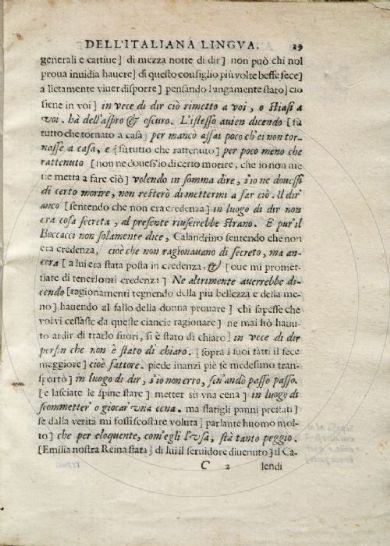 DELL'ITALIANA LINGVA. 19
generali e cattiue] di mezza notte di dir] non può chi nol
proua inuidia hauere] di questo consiglio più volte besse fece]
a lietamente viuer disporre] pensando lungamente stato] ciò
siene in voi] in vece di dir ciò rimetto a voi, o stiasi a
voi. hà dell'aspro & oscuro. L'istesso auien dicendo [fà
tutto che tornato a casa] per manco assai poco ch'ei non tor-
nasse a casa, e [fatutto che rattenuto] per poco meno che
rattenuto [non doues'io di certo morire, che io non me
ne metta a fare ciò] volendo in somma dire, s'io ne douessi
di certo morire, non resterò di mettermi a far ciò. Il dir
anco [sentendo che non era credenza] in luogo di dir non
era cosa secreta, al presente riuscirebbe strano. E pur'il
Boccacci non solamente dice, Calandrino sentendo che non
era credenza, cioè che non ragionauano di secreto, ma an-
cora [a lui era stata posta in credenza, & [oue mi promet-
tiate di tenerlomi credenza] Ne altrimente auerrebbe di-
cendo [ragionamenti tegnendo della più bellezza e della me-
no] hauendo al fallo della donna prouare] chi sapesse che
voi vi cessaste da queste ciancie ragionare] ne mai hò hauu-
to ardir di trarlo fuori, si è stato di chiaro] in vece di dir
persin che non è stato di chiaro. [sopra i suoi fatti il fece
maggiore] cioè fattore. piede inanzi piè se medesimo tran-
sportò] in luogo di dir, s'io non erro, sen' andò passo passo.
e lasciate le spine stare] metter sù vna cena] in luogo di
scommetter' o giocar' vna cena. ma statigli ponni prestati]
se dalla verità mi fossi scostare voluta] parlante huomo mol-
to] che per eloquente, com'egli l'vsa, stà tanto peggio.
[Emilia nostra Reina stata] di lui il seruidore diuenuto] il Ca-
C 2 lendi